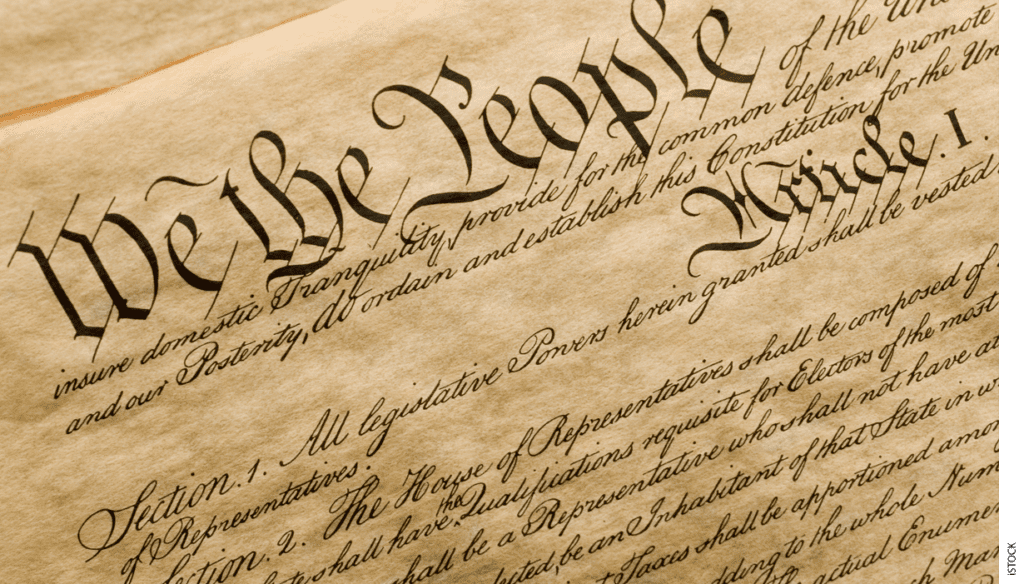 We the People of the
insure domestic Tranquility, provide for the common defence, promote
and our Posterity, do ordain and establish this Constitution for the Un
Article. I.
Section. 1. All legislative Powers herein granted shall be vested
of Representatives.
ection. 2. The House of Representatives shall be composed of
shall have the Qualifications requisite for Electors of the most
hall be a Representative who shall not have at
lected, be an Inhabitant of that State in w
Taxes shall be apportioned amon
dding to the whole Num
actual Enumer
ISTOCK